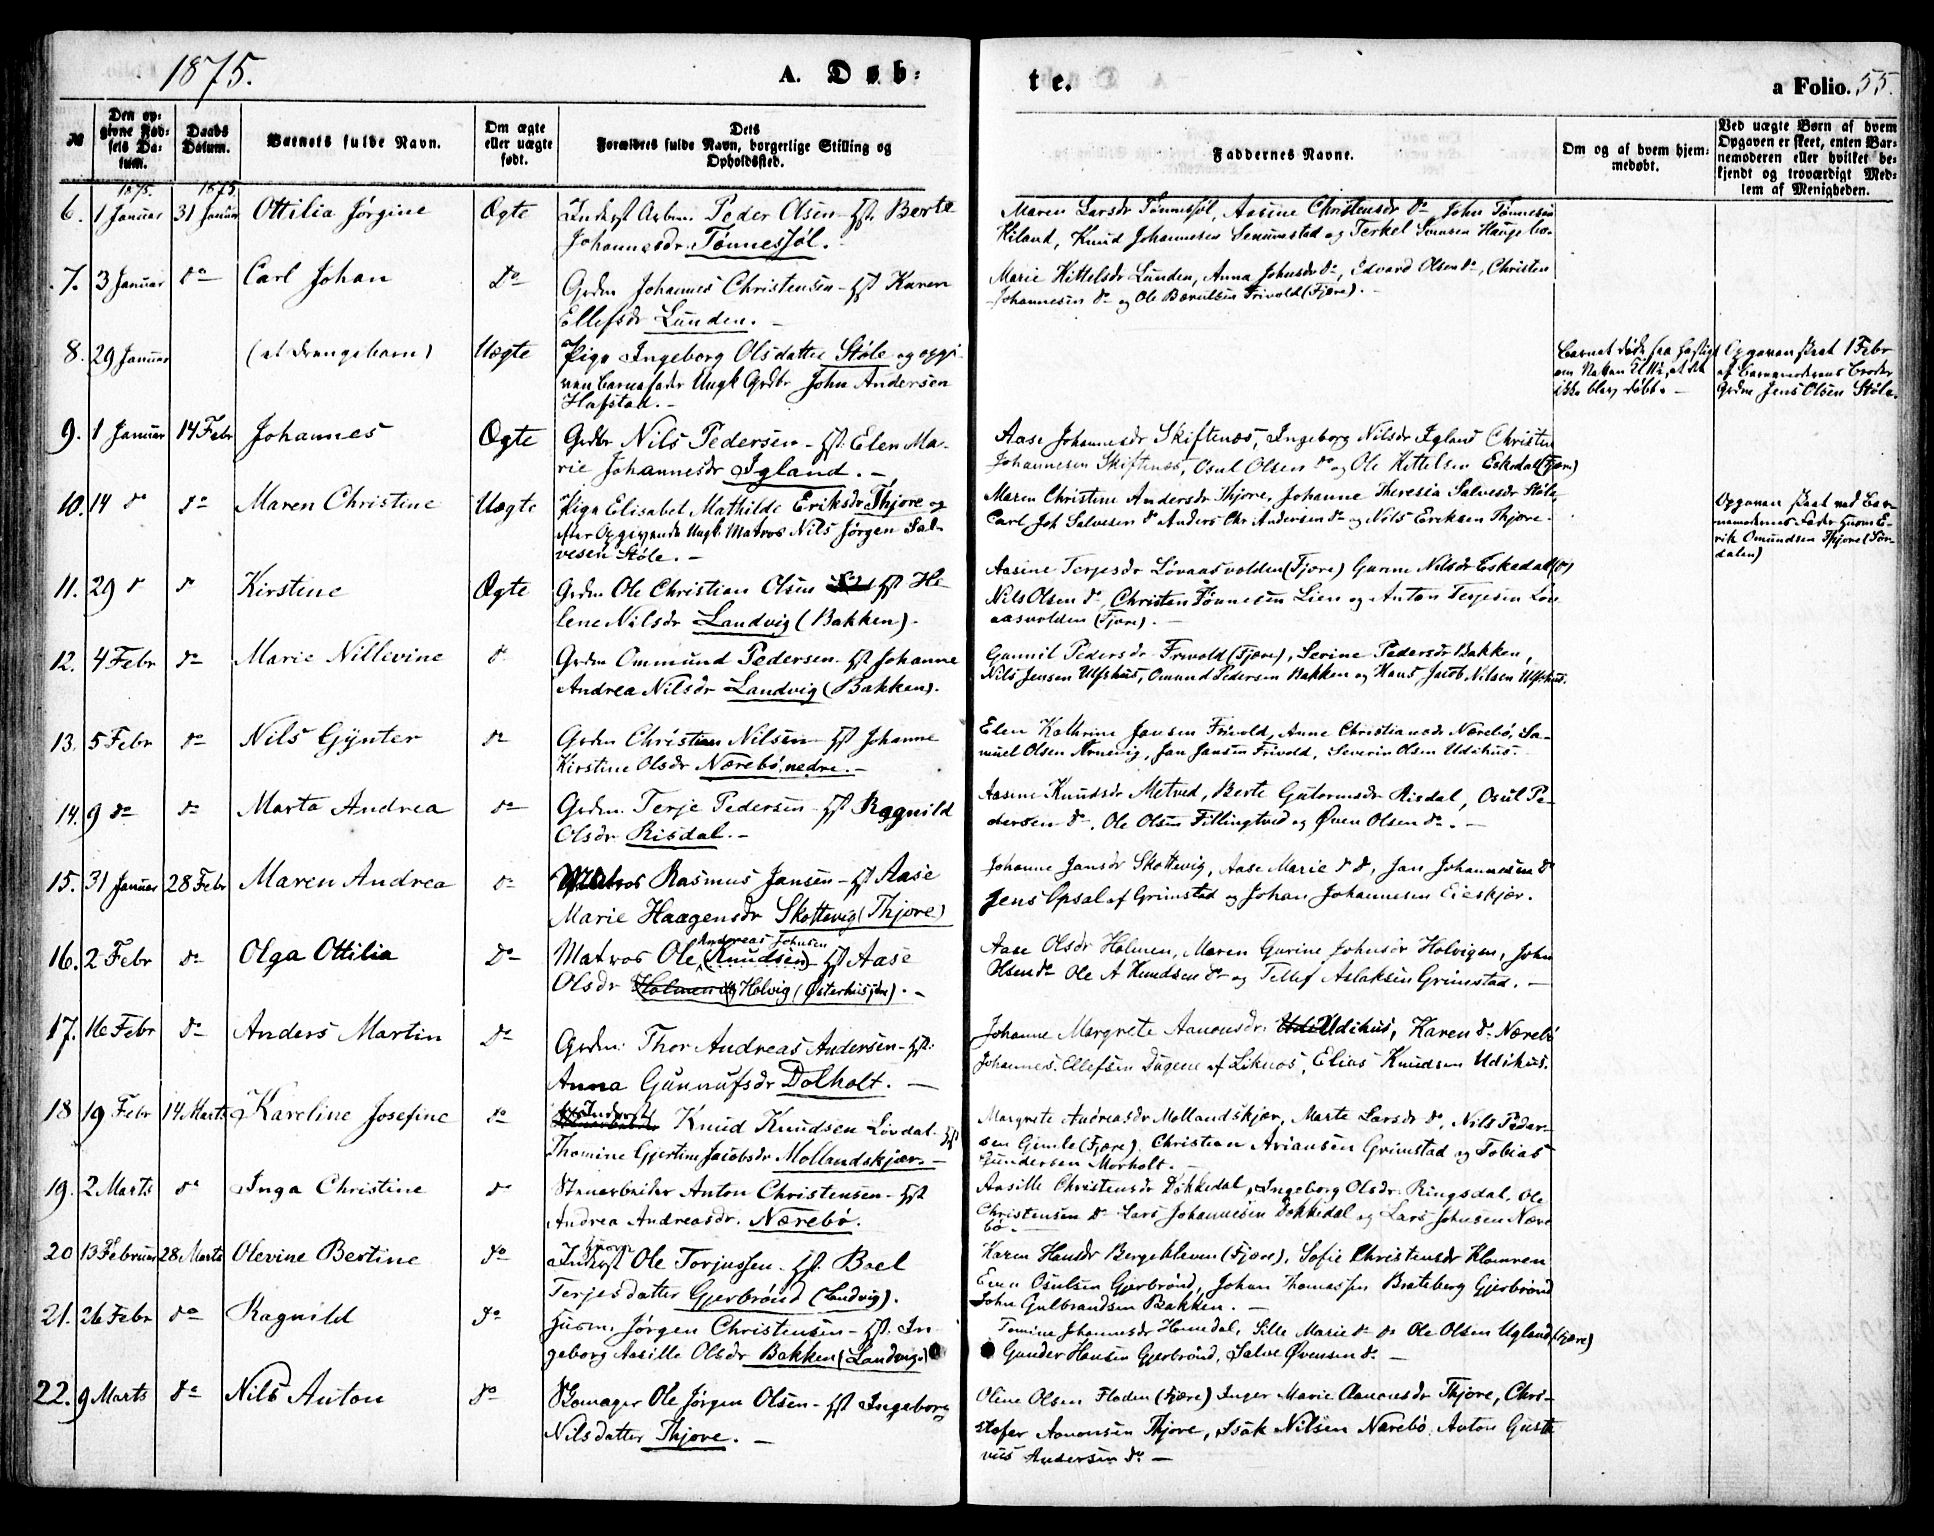 1875.
A. Døb-
te.
a Folio. 55.
№
Den op-
givne Fød-
sels Da-
tum.
Daabs
Datum.
Barnets fulde Navn.
Om ægte
eller uægte
født.
Dets
Forældres fulde Navn, borgerlige Stilling og
Opholdssted.
Faddernes Navne.
Om og af hvem hjem-
medøbt.
Ved uægte Børn af hvem
Opgaven er skeet, enten Bar-
nemoderen eller hvilket be-
kjendt og troværdigt Med-
lem af Menigheden.
1875. 1875.
6. 1 Januar 31 Januar Ottilia Jørgine Ægte Inderst Peder Olsen - Hst. Berte
Johannesdr. Tønnesjøl.
Maren Larsdr Tønnesjøl, Aasine Christensdr do John Tønnesen
Hiland, Knud Johannesen Senumstad og Terkel
7. 3 Januar do Carl Johan Do Grdm Johannes Christensen - Hst Karen
Ellefsdr Lunden. -
Marie Kittelsdr Lunden, Anna Johnsdr do, Edvard Olsen do, Christen
Johannesen do og Ole Frivold (Fjære). -
8. 29 Januar (et Drengebarn) Uægte Pige Ingeborg Olsdatter Støle og opgi-
ven Barnefader Ungk Grdbr John Andersen
Hafstad. -
Barnet døde saa hastigt
om Natten at det
ikke blev døbt. -
Opgaven skeet 1 Febr
af Barnemoderens Broder
Grdm Jens Olsen Støle.
9. 1 Januar 14 Febr Johannes Ægte Grdbr Nils Pedersen - Hst. Elen Ma-
rie Johannesdr Igland. -
Aase Johannesdr Skiftenes, Ingeborg Nilsdr Igland Christen
Johannesen Skiftenes, Osul Olsen do og Ole Kittelsen Eskedal (Fjære)
10. 14 do do Maren Christine Uægte Pige Elisabet Mathilde Eriksdr Thjore og
efter Opgivende Ungk. Matros Nils Jørgen Sal-
vesen Støle. -
Maren Christine Andersdr Thjore, Johanne Theresia Salvesdr Støle
Carl Joh Salvesen do Anders Chr Andersen do og Nils Eriksen Thjore.
Opgaven skeet ved Bar-
nemoderens Fader Huusm E-
rik Omundsen Thjore (Søn-
dalen)
11. 29 d d Kirstine Ægte Grdm Ole Christian Olsen Hst He-
lene Nilsdr Landvig (Bakken).
Aasine Terjesdr Lövaasvolden (Fjære) Gurine Nilsdr Eskedal (d)
Nils Olsen do, Christen Tønnesen Lien og Anton Terjesen Löv-
aasvolden (Fjære). -
12. 4 Febr do Marie Nillivine d Grdm Ommund Pedersen - Hst Johanne
Andrea Nilsdr Landvig (Bakken).
Gunnil Pedersdr Frivold (Fjære), Serine Pedersdr Bakken,
Nils Jensen Ulfshus, Omund Pedersen Bakken og Hans Jacob Nilsen Ulfshus.
13. 5 Febr do Nils Gynter do Grdm Christian Nilsen - Hst Johanne
Kirstine Olsdr Nærebö, nedre. -
Elen Kathrine Jansen Frivold, Anne Christiansdr Nærebö, Sa-
muel Olsen Nrnevig, Jan Jansen Frivold, Severin Olsen Udihus.
14. 9 do do Marta Andrea do Grdm. Terje Pedersen - Hst Ragnild
Olsdr Risdal. -
Aasine Knudsdr Metved, Berte Gutormsdr Risdal, Osul Pe-
dersen do, Ole Olsen Fillingtved og Öven Olsen do. -
15. 31 Januar 28 Febr Maren Andrea do Matros Rasmus Jansen - Hst Aase
Marie Haagensdr Skottevig (Thjore)
Johanne Jansdr Skottevig, Aase Marie d d, Jan Johannesen do
Jens Opsal af Grimstad og Johan Johannesen Eieskjær.
16. 2 Febr do Olga Ottilia Do Matros Ole (Knudsen) Hst Aase
Andreas Johnsen
Olsdr Holmen Holvig (Østerhusjdre). -
Aase Olsdr Holmen, Maren Gurine Johnsdr Holvigen, John
Olsen do Ole A Knudsen do og Tellef Aslaksen Grimstad. -
17. 16 Febr do Anders Martin Do Grdm: Thor Andreas Andersen - Hst.
Anna Gunnufsdr Dolholt. -
Johanne Margrete Aanonsdr. Udihus, Karen do Nærebö
Johannes Ellefsen Dugene af Liknes, Elias Knudsen Udihus.
18 19 Febr 14 Marts Kareline Josefine do Inderst Knud Knudsen Lövdal Hst
Thomine Gjertine Jacobsdr Mollandskjær. -
Margrete Andreasdr Mollandskjær, Marte Larsdr do, Nils Peder-
sen Gimle (Fjære), Christian Ariansen Grimstad og Tobias
Gundersen Morholt. -
19. 2 Marts do Inga Christine d Stenarbeider Anton Christensen - Hst
Andrea Andreasdr. Nærebö.
Aasille Christensdr Dokkedal, Ingeborg Olsdr. Ringsdal, Ole
Christensen do Lars Johannesen Dokkedal og Lars Johnsen Nære-
bö. -
20 13 Februar 28 Marts Olevine Bertine do Inderst Ole Torjussen - Hst. Boel
Terjesdatter Gjerbrönd (Landvig).
Karen Hansdr Bergekleven (Fjære), Sofie Christensdr Klomren
Even Osulsen Gjerbrönd, Johan Thomassen Brateberg Gjerbrönd
John Gulbrandsen Bakken. -
21. 26 Febr do Ragnild do Husm. Jørgen Christensen - Hst. In-
geborg Aasille Olsdr Bakken (Landvig)
Tomine Johannesdr Homedal, Sille Marie do do Ole Olsen Ugland (Fjære)
Gunder Hansen Gjerbrönd, Salve Øvensen do -
22. 9 Marts do Nils Anton do Skomager Ole Jørgen Olsen - Hst Ingeborg
Nilsdatter Thjore. -
Oline Olsen Floden (Fjære) Inger Marie Aanonsdr Thjore, Chri-
stofer Aanonsen Thjore, Isak Nilsen Nærebö, Anton Gusta-
vus Andersen do -